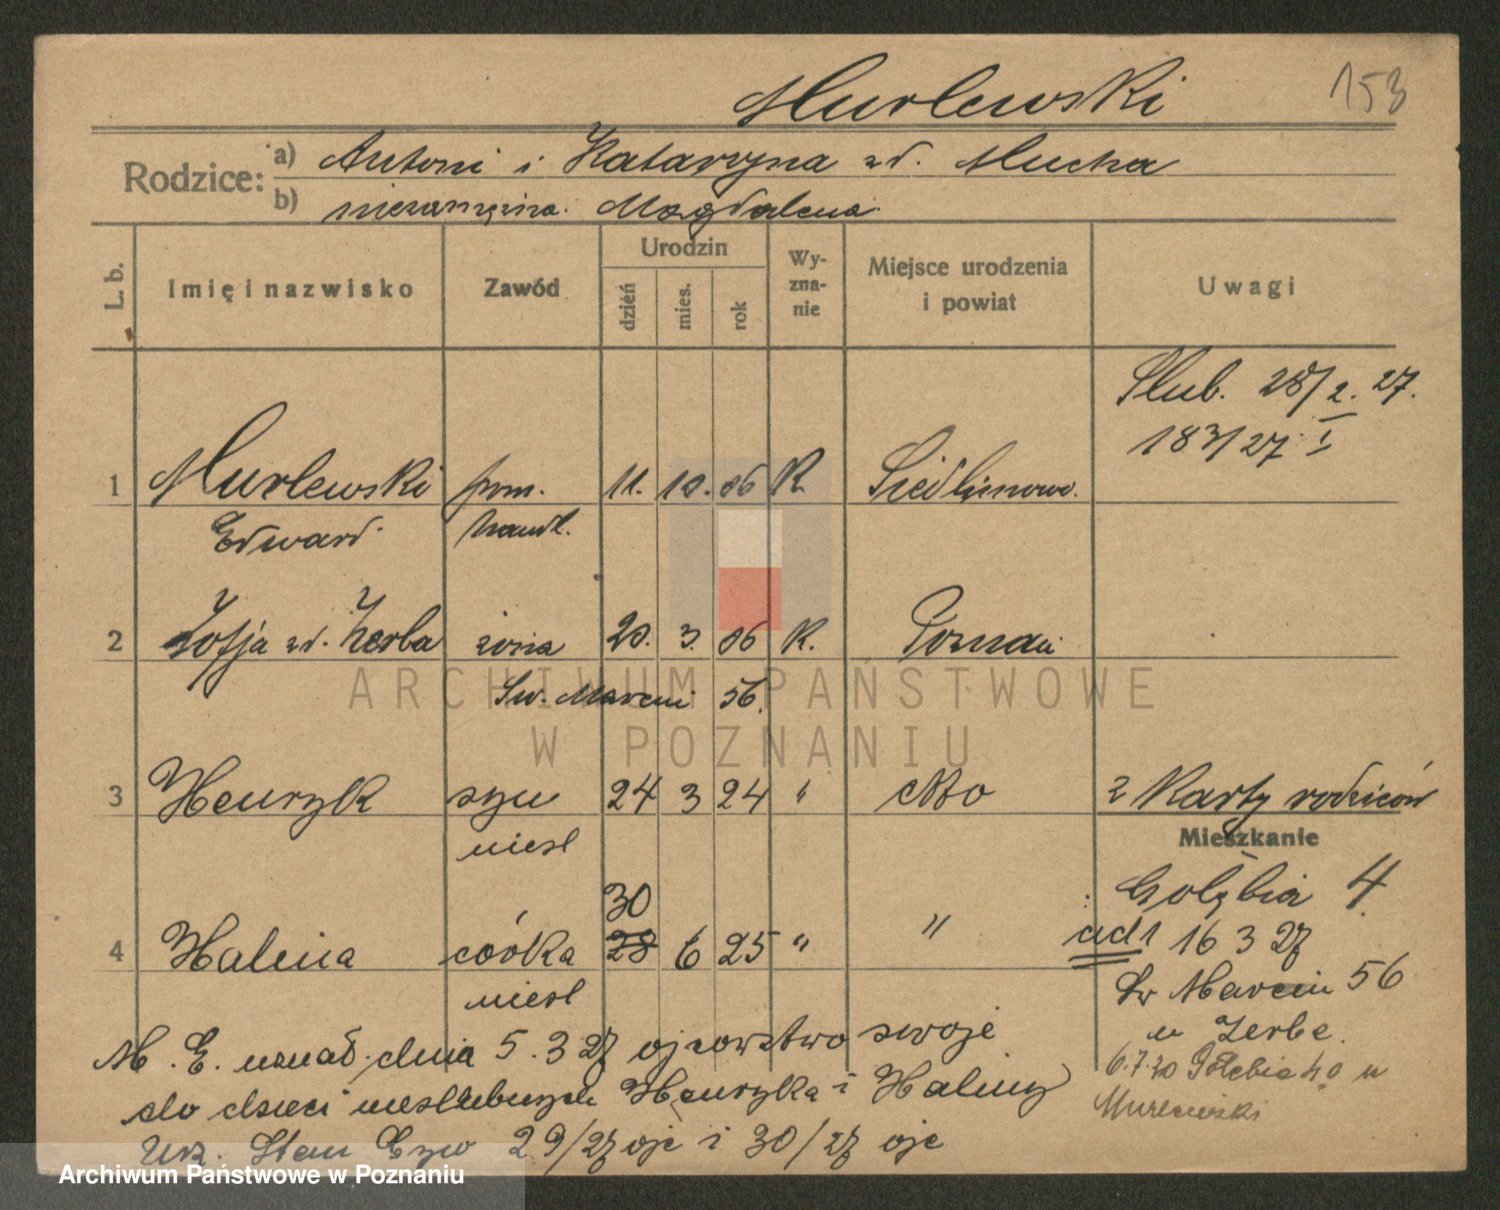 Murlewski 153
Rodzice: a) Antoni i Katarzyna zd. Mucha
b) niezamężna. Magdalena.
L. b. Imię i nazwisko Zawód Urodzin dzień mies. rok Wy-zna-nie Miejsce urodzenia i powiat Uwagi
Ślub. 28/2. 27.
183/27 I
1 Murlewski pom. 11. 10. 06 K Siedlimowo.
Edward handl.
2 Zofja zd. Zerba żona 20. 3. 06 K. Poznań
Św. Marcin 56.
ARCHIWUM PAŃSTWOWE
W POZNANIU
3 Henryk syn 24 3 24 " z Karty rodziców
nieśl
Mieszkanie
Gołębia 4
30
4 Halina córka 28 6 25 " " ad 1 16 3 27
nieśl
Św Marcin 56
u Zerbe.
M. E. uznał dnia 5. 3 27 ojcowstwo swoje
do dzieci nieślubnych Henryka i Haliny
Urz. Stan Cyw 29/27 oje i 30/27 oje
6.7.30 Gołębia u
Murlewski
Archiwum Państwowe w Poznaniu